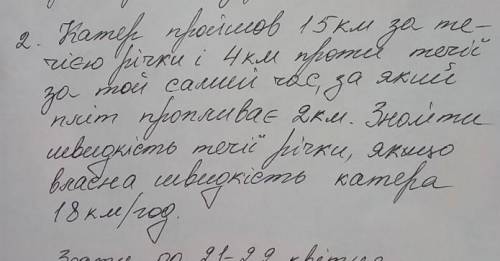 2. Катер пройшов 15 км за те-
чією річки і 4 км проти течії
за той самий час, за який
пліт пропливає 2 км. Знайти
швидкість течії річки, якщо
власна швидкість катера
18 км/год.
до 21-22 квітня